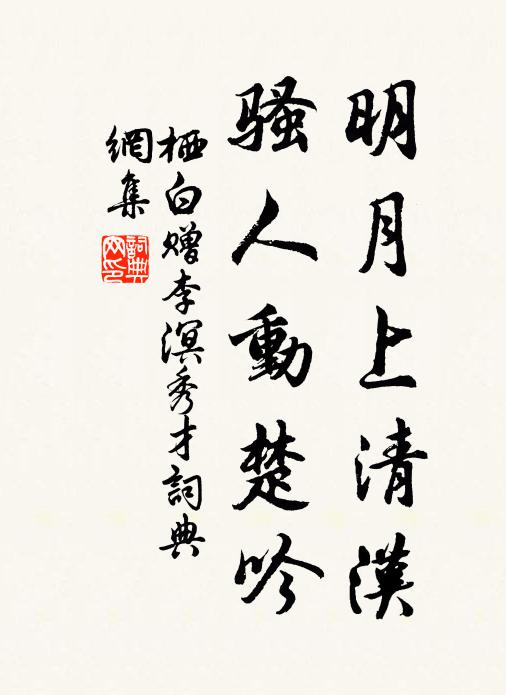 明月上清漢
騷人動楚吟
栖白贈李溟秀才詞典
網集
詞典网印